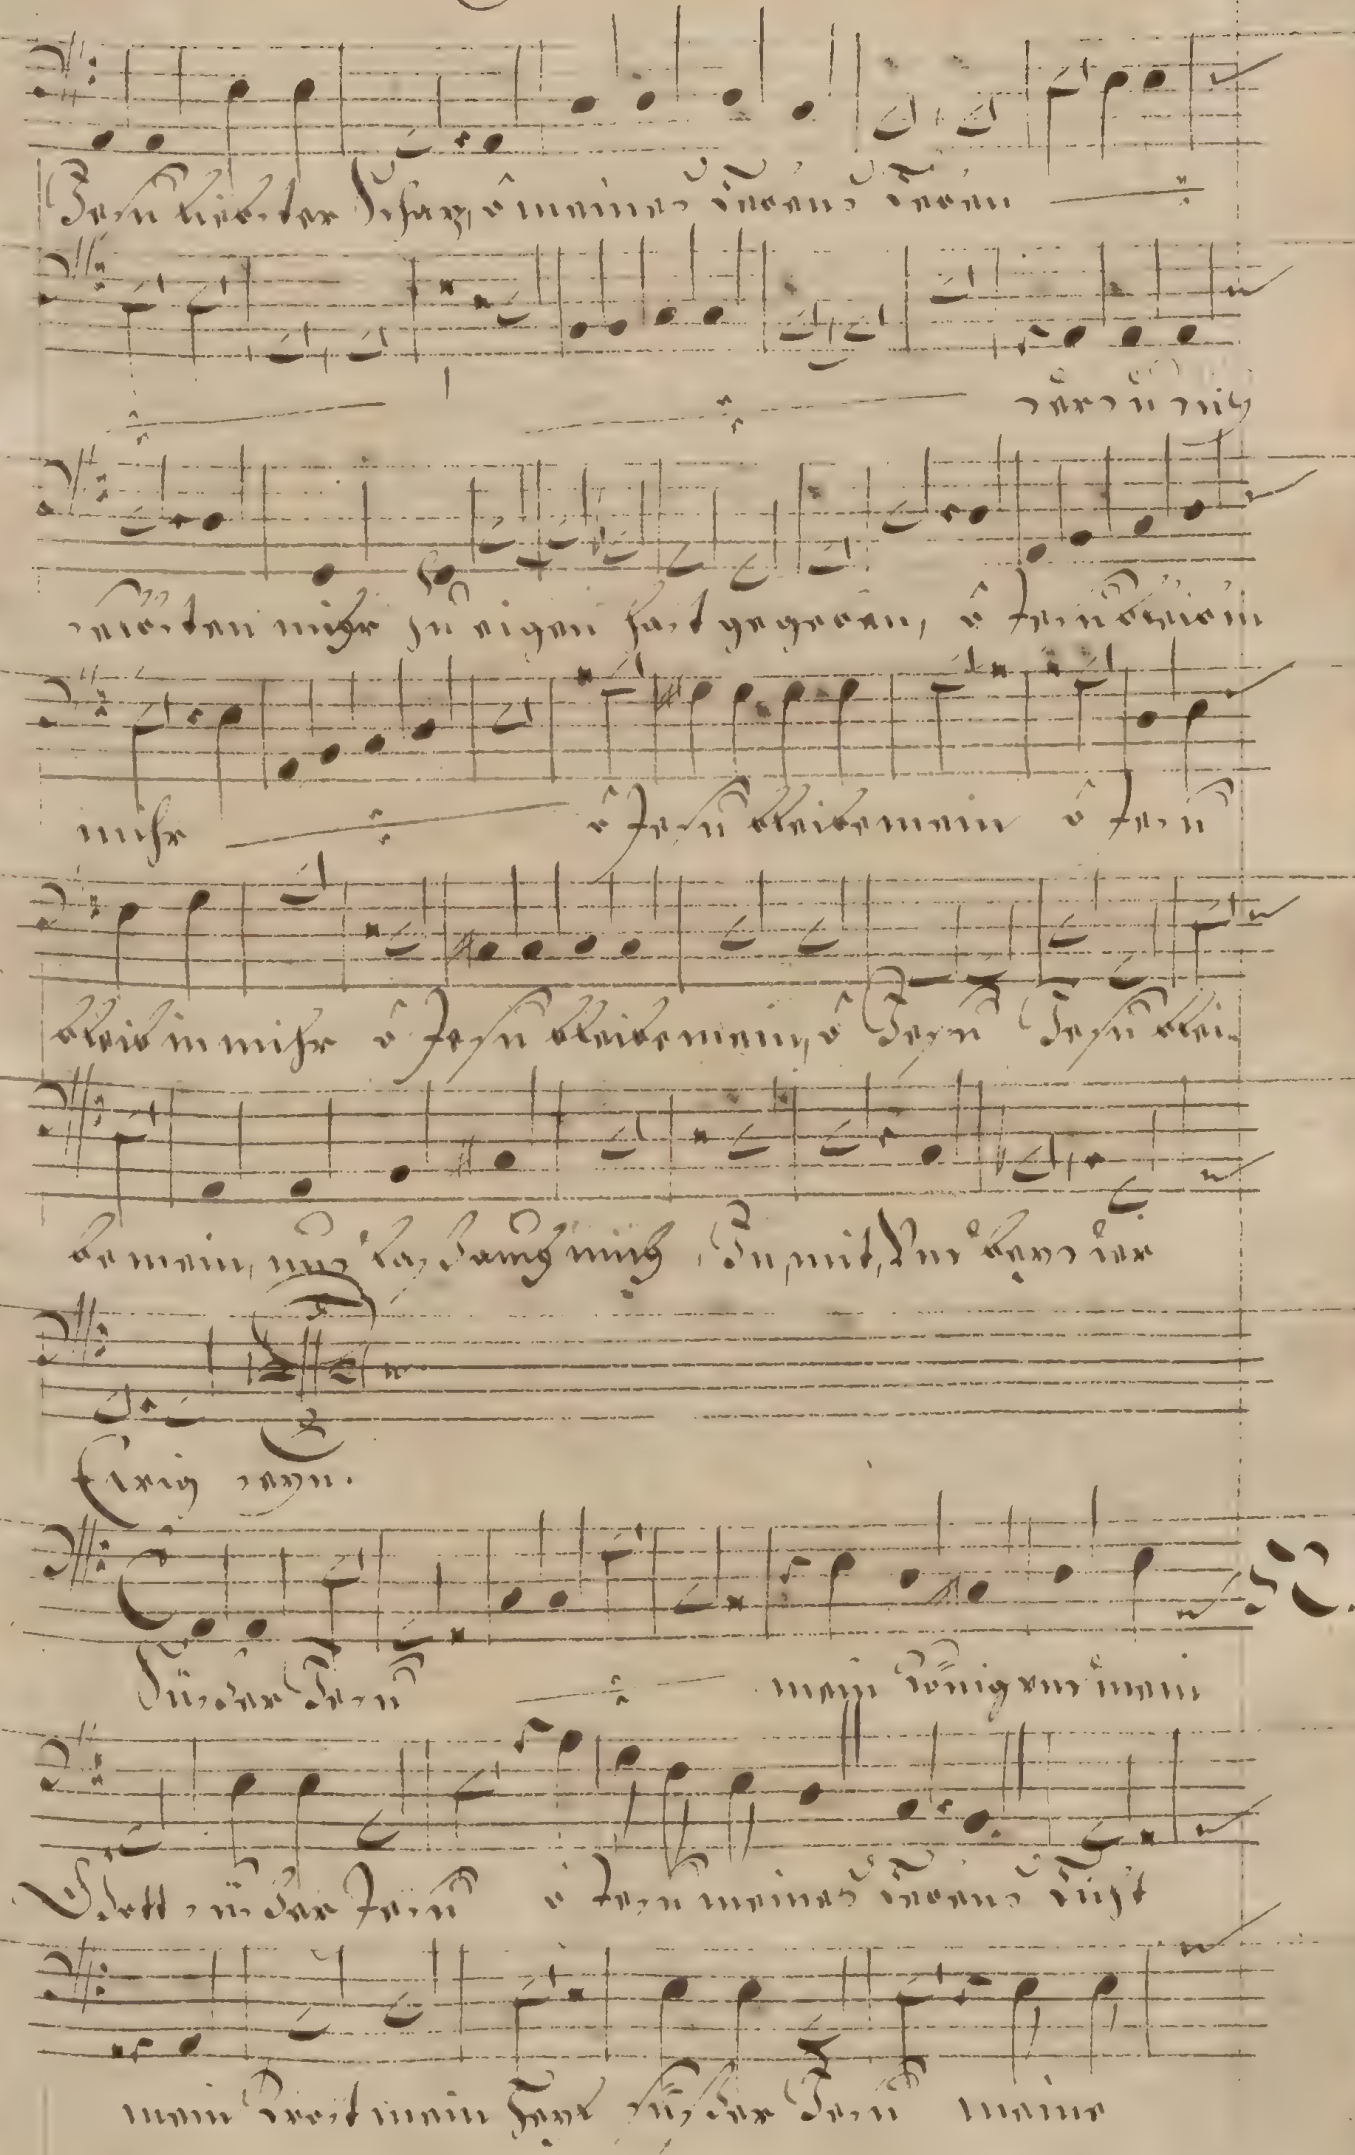 Jesu liebster Schaz, ô meines Lebens Leben
der du dich
selbsten mihr zu eigen hast gegeben, ô Jesu bleib in
mihr ô Jesu bleibe mein ô Jesu
bleib in mihr ô Jesu bleibe mein, ô Jesu Jesu blei-
be mein, und laß auch mich in, mit, und bey dir
Ewig seyn.
Süßer Jesu mein König und mein
Gott süßer Jesu ô Jesu meines Lebens
mein mein süßer Jesu meine